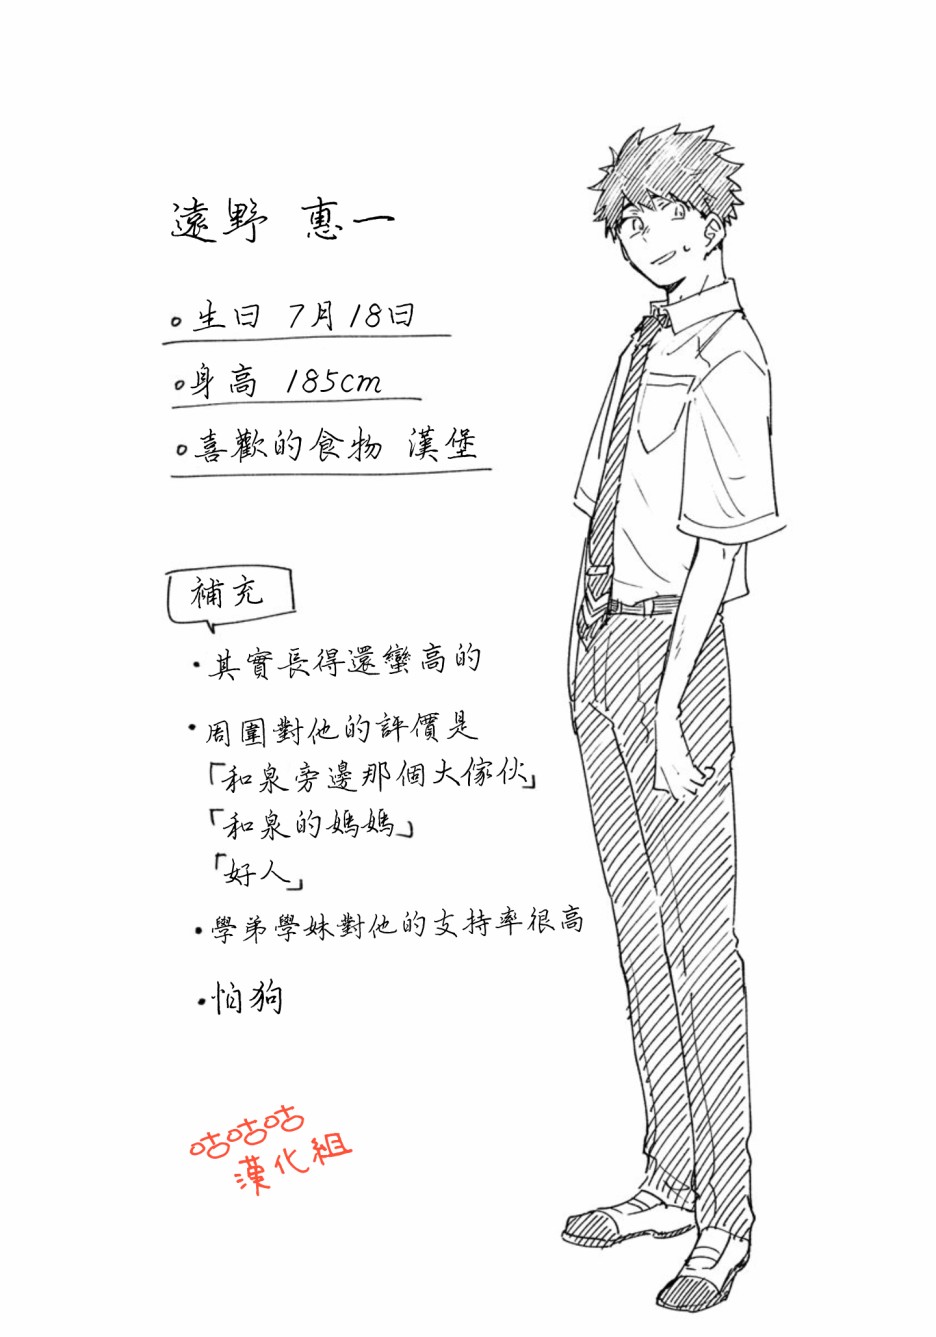 遠野 惠一
•生日 7月18日
•身高 185cm
•喜歡的食物 漢堡
補充
•其實長得還蠻高的
•周圍對他的評價是
「和泉旁邊那個大傢伙」
「和泉的媽媽」
「好人」
•學弟學妹對他的支持率很高
•怕狗
咕咕咕
漢化組